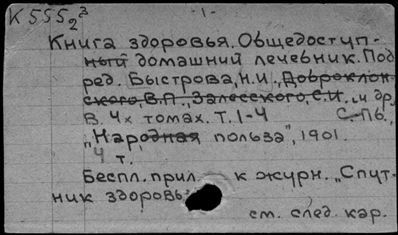 К 555₂³ - 1 -
Книга здоровья. Общедоступ-
ный домашний лечебник. Под
ред. Быстрова, Н.И., Доброклон-
ского, В.П., Залесского, С.И. и др.
В. 4х томах. Т. 1-4 С.-Пб.,
„Народная польза", 1901.
4 т.
Беспл. прил. к журн. „Спут-
ник здоровь
см. след. кар.